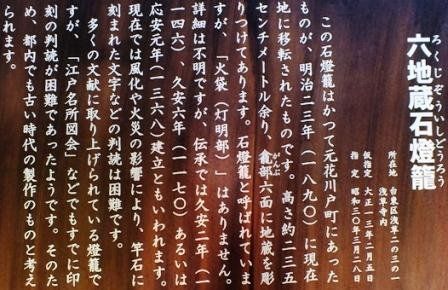 ろくじぞういしどうろう
六地蔵石燈籠
所在地 台東区浅草二の三の一
浅草寺内
仮指定 大正一三年二月五日
指定 昭和三〇年三月二八日
この石燈籠はかつて元花川戸町にあった
ものが、明治二三年(一八九〇)に現在
地に移転されたものです。高さ約二三五
がんぶ
センチメートル余り、龕部六面に地蔵を彫
りつけてあります。石燈籠と呼ばれていま
すが、「火袋(灯明部)」はありません。
詳細は不明ですが、伝承では久安二年(一
一四六)、久安六年(一一七〇)あるいは
応安元年(一三六八)建立ともいわれます。
現在では風化や火災の影響により、竿石に
刻まれた文字などの判読は困難です。
多くの文献に取り上げられている燈籠で
すが、「江戸名所図会」などでもすでに印
刻の判読が困難であったようです。そのた
め、都内でも古い時代の製作のものと考え
られます。